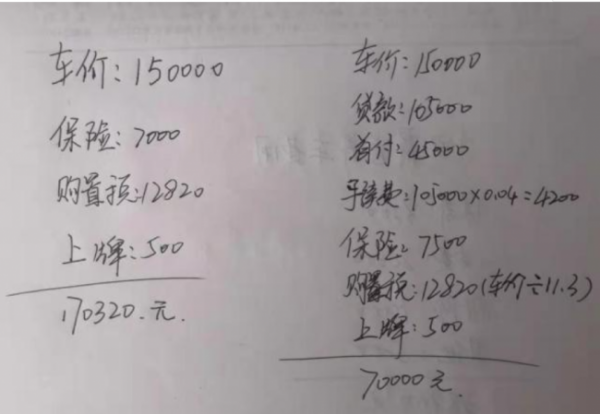 车价:150000
保险:7000
购置税:12820
上牌:500
170320.元.
车价:150000
贷款:105000
首付:45000
手续费:105000×0.04=4200
保险:7500
购置税:12820(车价÷11.3)
上牌:500
70000元.